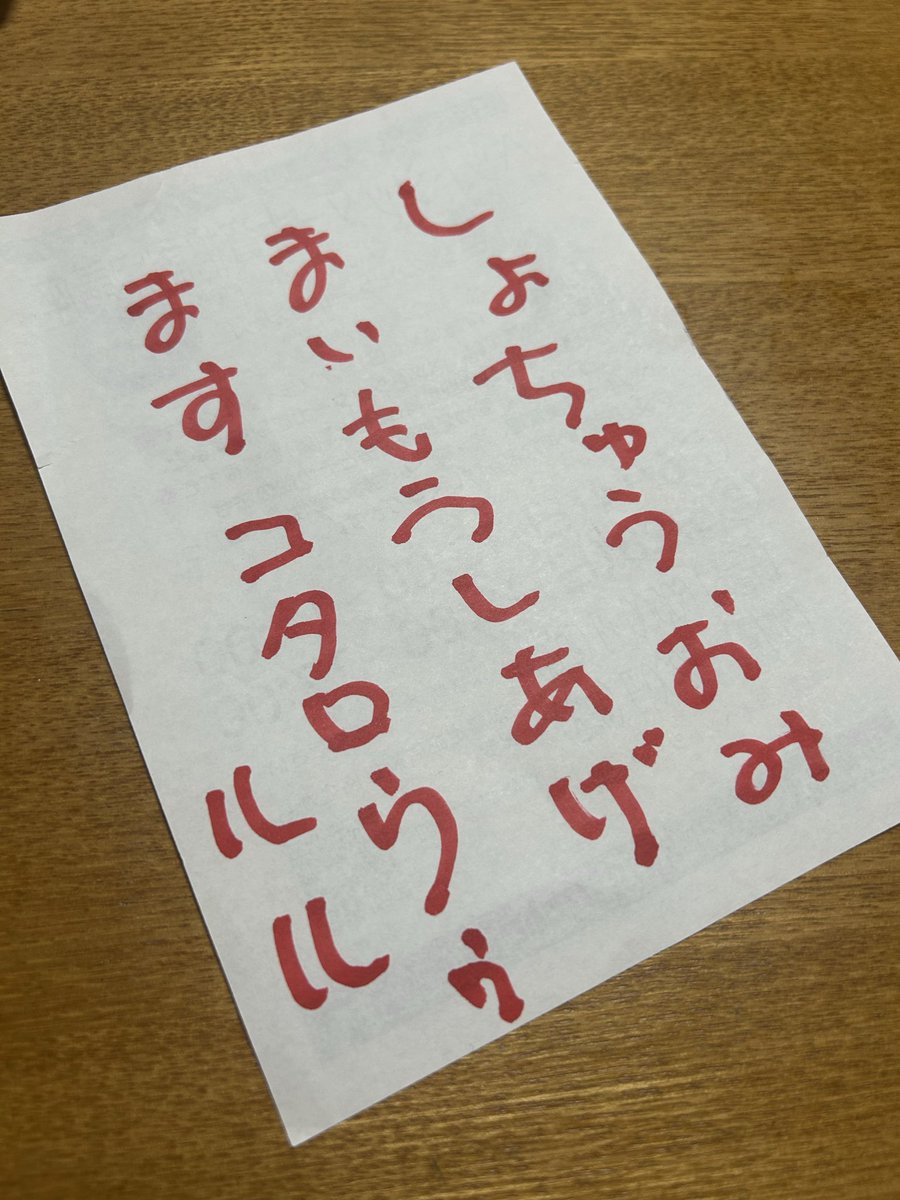 しょちゅうおみ
まいもうしあげ
ます コタロうゥ
ルル